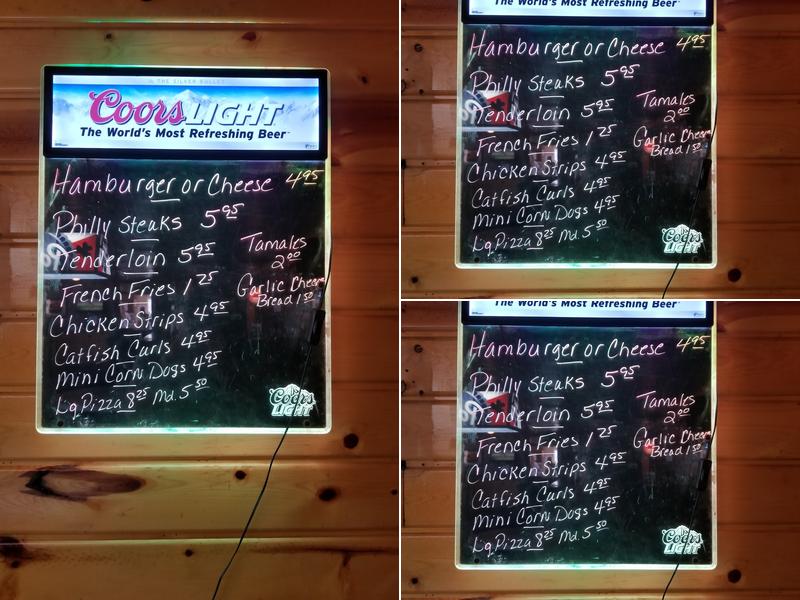 THE SILVER BULLET
Coors LIGHT
The World's Most Refreshing Beer
Hamburger or Cheese 4.95
Philly Steaks 5.95
Tenderloin 5.95
French Fries 1.25
Chicken Strips 4.95
Catfish Curls 4.95
Mini Corn Dogs 4.95
Lg Pizza 8.25 Md. 5.50
Tamales
2.00
Garlic Cheese
Bread 1.50
Coors
LIGHT
The World's Most Refreshing Beer
Hamburger or Cheese 4.95
Philly Steaks 5.95
Tenderloin 5.95
French Fries 1.25
Chicken Strips 4.95
Catfish Curls 4.95
Mini Corn Dogs 4.95
Lg Pizza 8.25 Md. 5.50
Tamales
2.00
Garlic Cheese
Bread 1.50
Coors
LIGHT
The World's Most Refreshing Beer
Hamburger or Cheese 4.95
Philly Steaks 5.95
Tenderloin 5.95
French Fries 1.25
Chicken Strips 4.95
Catfish Curls 4.95
Mini Corn Dogs 4.95
Lg Pizza 8.25 Md. 5.50
Tamales
2.00
Garlic Cheese
Bread 1.50
Coors
LIGHT